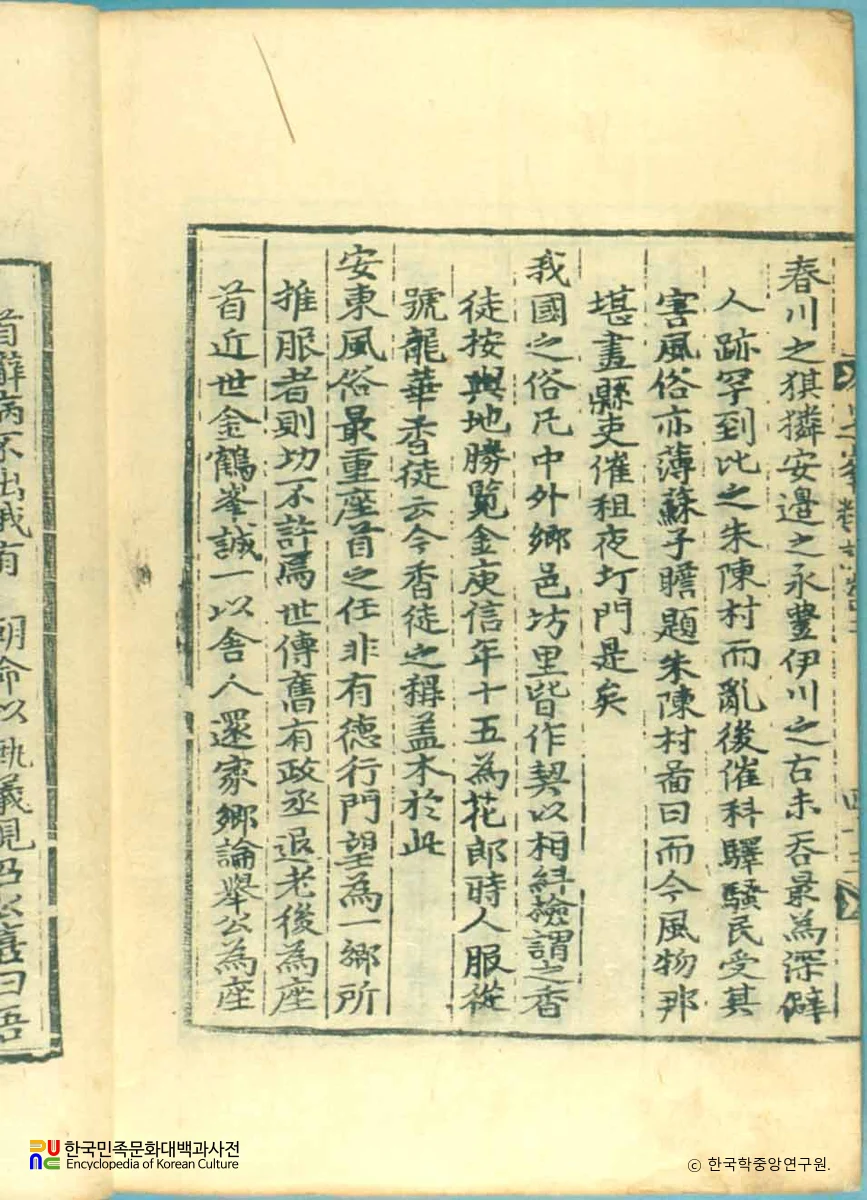 春川之猉獜安邉之永豊伊川之古未呑最為深僻
人跡罕到比之朱陳村而亂後催科驛騷民受其
害風俗亦薄蘇子瞻題朱陳村啚曰而今風物那
堪畫縣吏催租夜打門是矣
我國之俗凡中外鄉邑坊里皆作契以相糾撿謂之香
徒按輿地勝覽金庾信年十五為花郎時人服從
號龍華香徒云今香徒之稱盖本於此
安東風俗最重座首之任非有德行門望為一鄉所
推服者則切不許焉世傳舊有政丞退老後為座
首近世金鶴峯誠一以舍人還家鄉論舉公為座
首辭病不出哦有 朝命以執義
曰吾
한국민족문화대백과사전
Encyclopedia of Korean Culture
ⓒ 한국학중앙연구원.